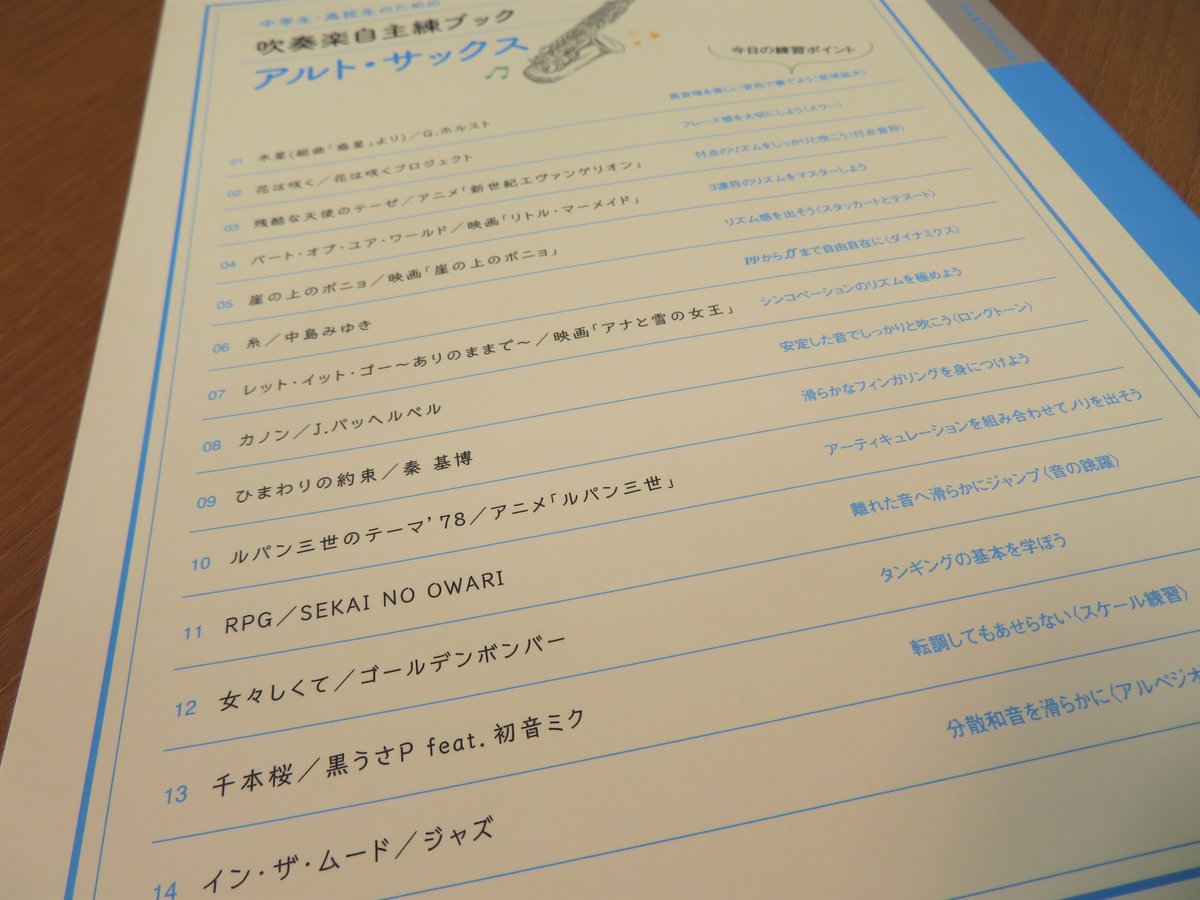 中学生・高校生のための
吹奏楽自主練ブック
アルト・サックス
今日の練習ポイント
01 木星(組曲「惑星」より)／G.ホルスト 高音域を美しい音色で奏でよう〈音域拡大〉
02 花は咲く／花は咲くプロジェクト フレーズ感を大切にしよう〈スラー〉
03 残酷な天使のテーゼ／アニメ「新世紀エヴァンゲリオン」 付点のリズムをしっかりと吹こう〈付点音符〉
04 パート・オブ・ユア・ワールド／映画「リトル・マーメイド」 3連符のリズムをマスターしよう
05 崖の上のポニョ／映画「崖の上のポニョ」 リズム感を出そう〈スタッカートとテヌート〉
06 糸／中島みゆき ppからffまで自由自在に〈ダイナミクス〉
07 レット・イット・ゴー〜ありのままで〜／映画「アナと雪の女王」 シンコペーションのリズムを極めよう
08 カノン／J.パッヘルベル 安定した音でしっかりと吹こう〈ロングトーン〉
09 ひまわりの約束／秦 基博 滑らかなフィンガリングを身につけよう
10 ルパン三世のテーマ'78／アニメ「ルパン三世」 アーティキュレーションを組み合わせてノリを出そう
11 RPG／SEKAI NO OWARI 離れた音へ滑らかにジャンプ〈音の跳躍〉
12 女々しくて／ゴールデンボンバー タンギングの基本を学ぼう
13 千本桜／黒うさP feat. 初音ミク 転調してもあせらない〈スケール練習〉
14 イン・ザ・ムード／ジャズ 分散和音を滑らかに〈アルペジオ